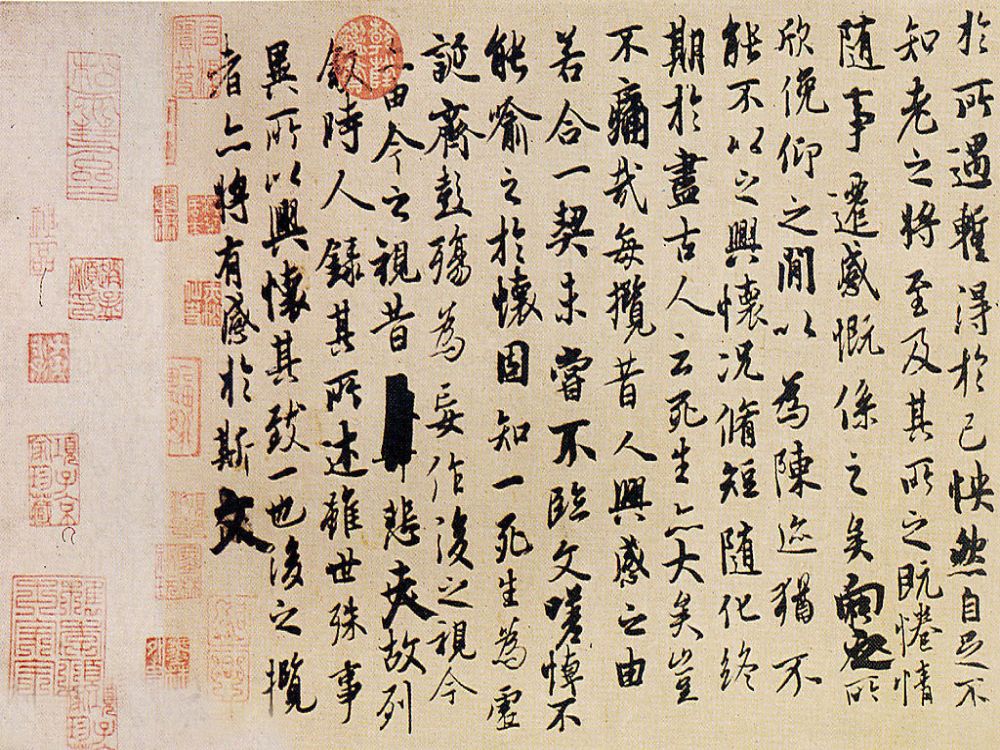 於所遇蹔得於己怏然自足不
知老之將至及其所之既惓情
随事遷感慨係之矣向之所
欣俛仰之閒以為陳迹猶不
能不以之興懷况脩短随化終
期於盡古人云死生亦大矣豈
不痛哉每攬昔人興感之由
若合一契未嘗不臨文嗟悼不
能喻之於懷固知一死生為虛
誕齊彭殤為妄作後之視今
亦由今之視昔悲夫故列
叙時人錄其所述雖世殊事
異所以興懷其致一也後之攬
者亦將有感於斯文
項子京
家珍藏